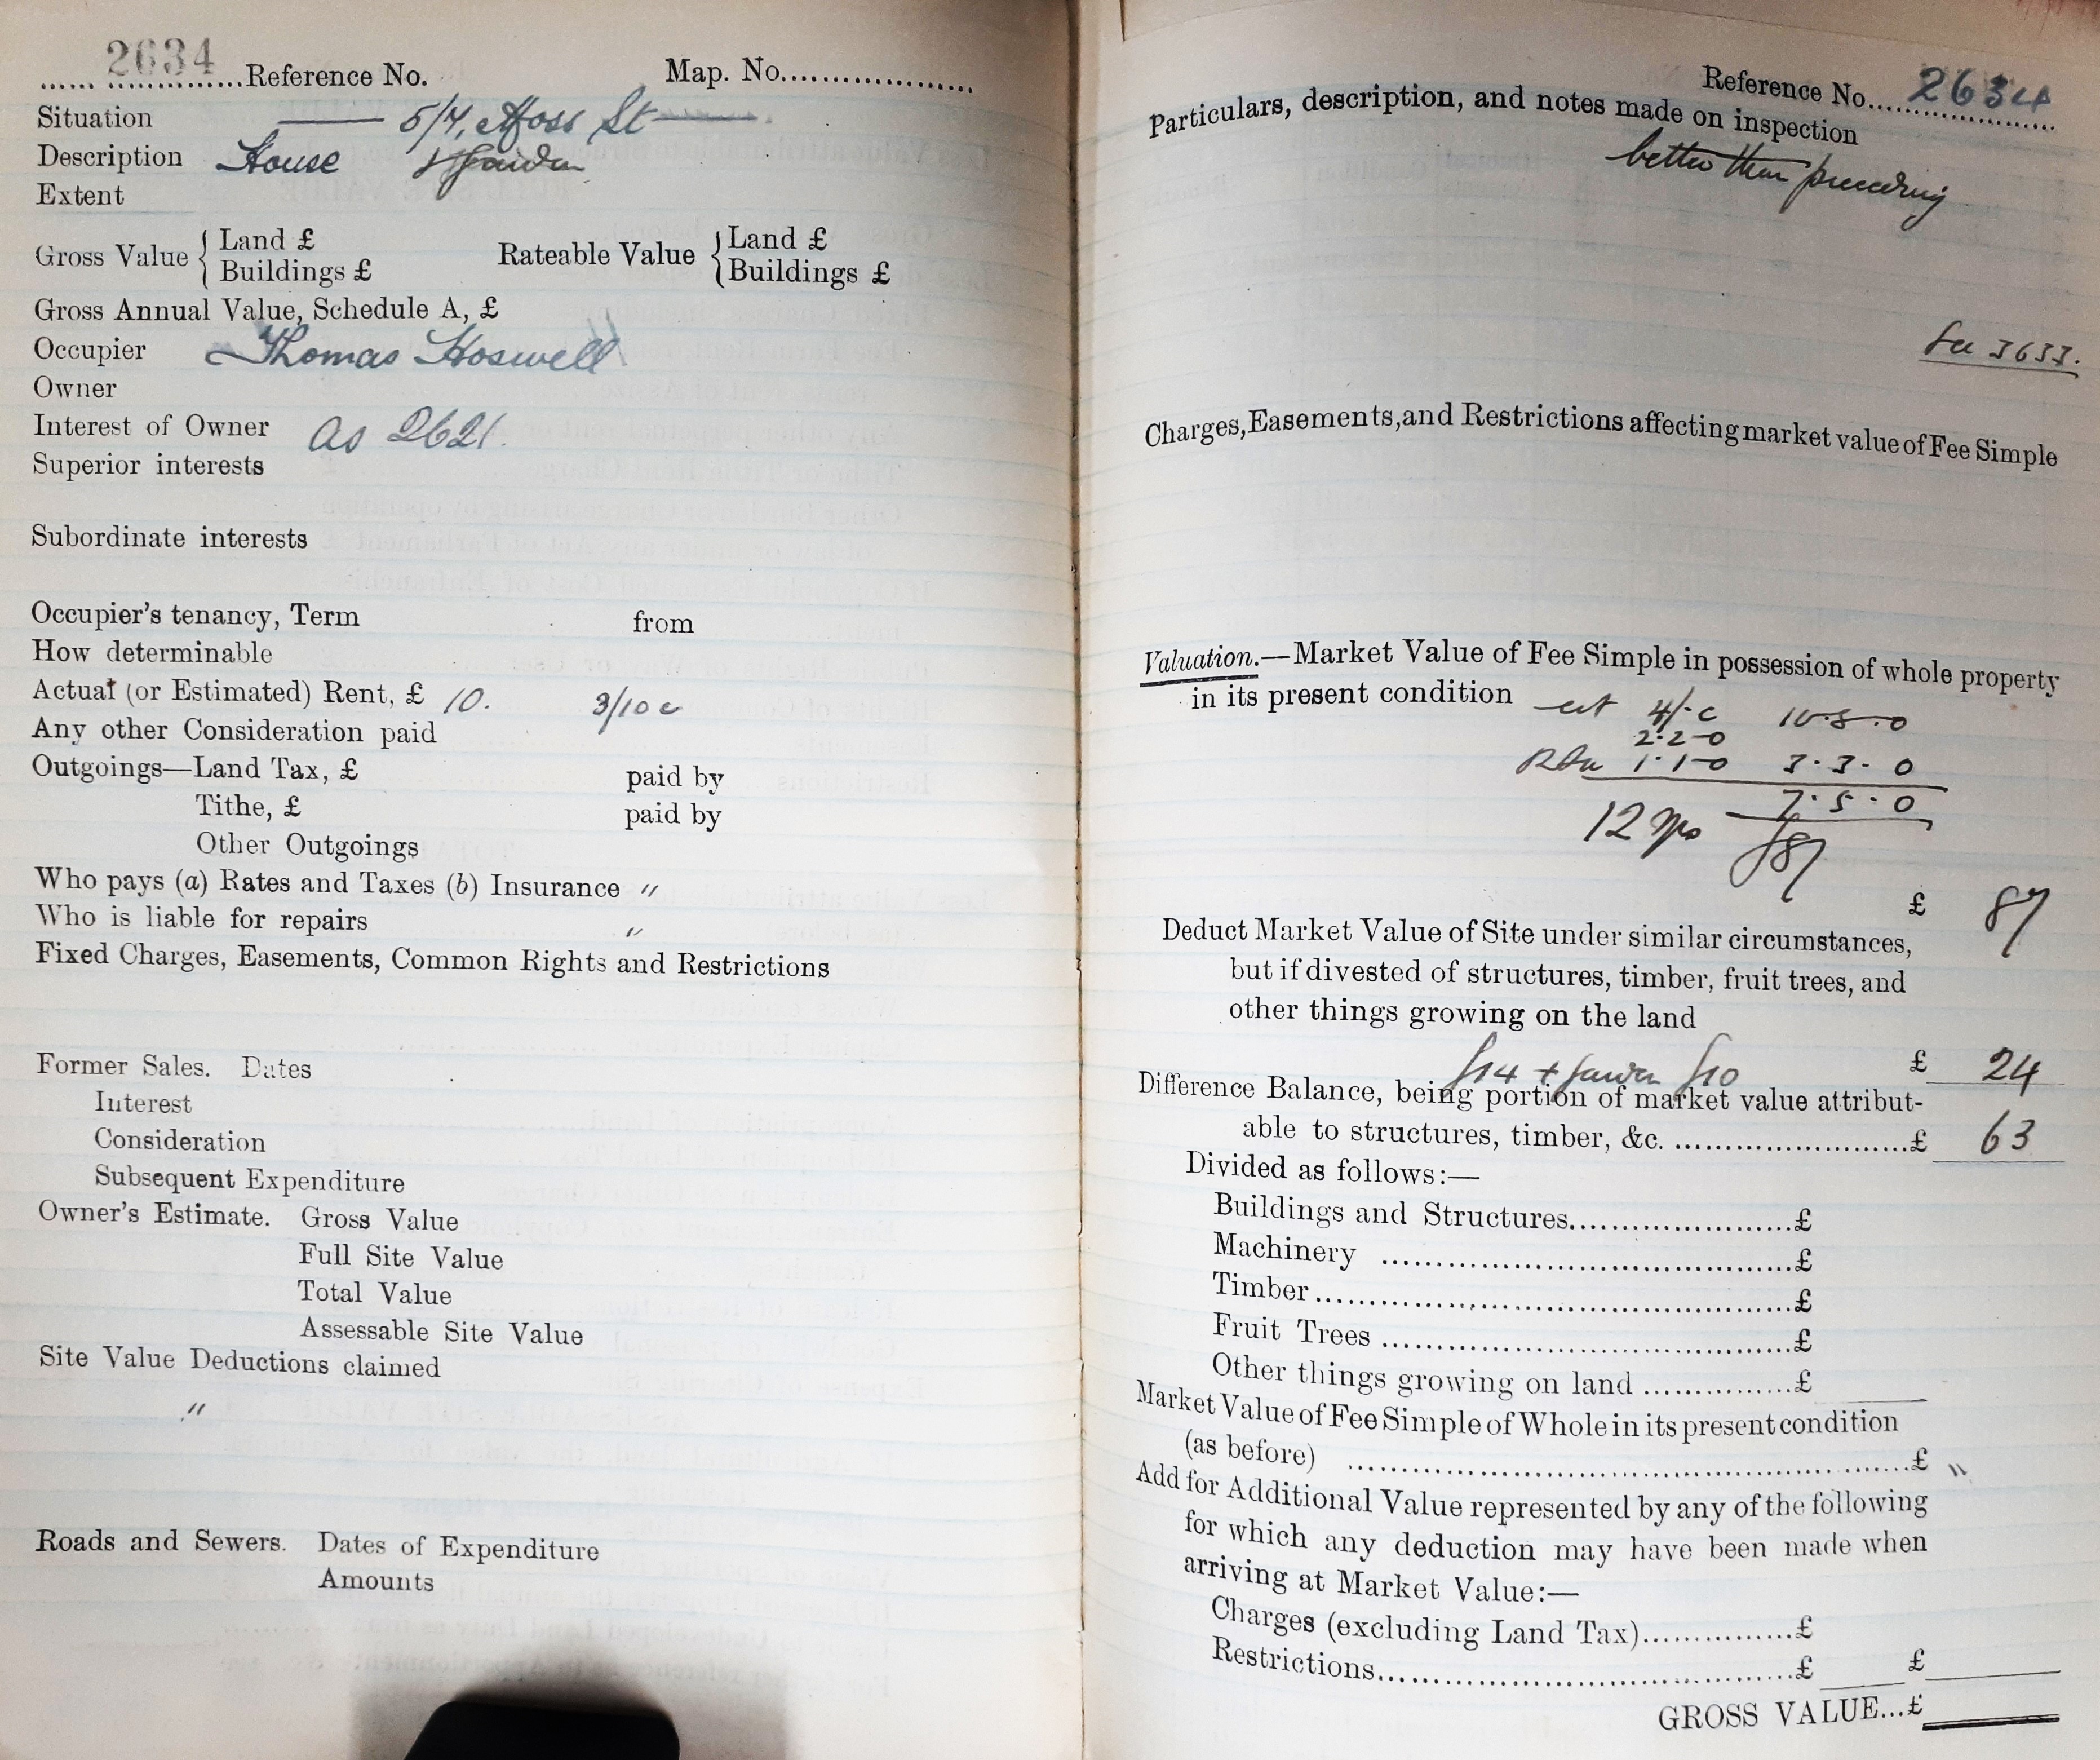 2634 Reference No. Map. No.
Situation 5/7, Moss St
Description House & Garden
Extent
Gross Value { Land £
Buildings £
Rateable Value { Land £
Buildings £
Gross Annual Value, Schedule A, £
Occupier Thomas Hoswell
Owner
Interest of Owner as 2621.
Superior interests
Subordinate interests
Occupier's tenancy, Term from
How determinable
Actual (or Estimated) Rent, £ 10. 3/10 c
Any other Consideration paid
Outgoings—Land Tax, £ paid by
Tithe, £ paid by
Other Outgoings
Who pays (a) Rates and Taxes (b) Insurance "
Who is liable for repairs "
Fixed Charges, Easements, Common Rights and Restrictions
Former Sales. Dates
Interest
Consideration
Subsequent Expenditure
Owner's Estimate. Gross Value
Full Site Value
Total Value
Assessable Site Value
Site Value Deductions claimed
"
Roads and Sewers. Dates of Expenditure
Amounts
Reference No. 2634
Particulars, description, and notes made on inspection
better than preceding
See 3633.
Charges, Easements, and Restrictions affecting market value of Fee Simple
Valuation.—Market Value of Fee Simple in possession of whole property
in its present condition est 4/- c 10.8.0
2.2.0
1.1.0 3.3.0
7.5.0
12 yrs £87
£ 87
Deduct Market Value of Site under similar circumstances,
but if divested of structures, timber, fruit trees, and
other things growing on the land
£14 + Garden £10 £ 24
Difference Balance, being portion of market value attribut-
able to structures, timber, &c. £ 63
Divided as follows:—
Buildings and Structures £
Machinery £
Timber £
Fruit Trees £
Other things growing on land £
Market Value of Fee Simple of Whole in its present condition
(as before) £ "
Add for Additional Value represented by any of the following
for which any deduction may have been made when
arriving at Market Value:—
Charges (excluding Land Tax) £
Restrictions £ £
GROSS VALUE...£